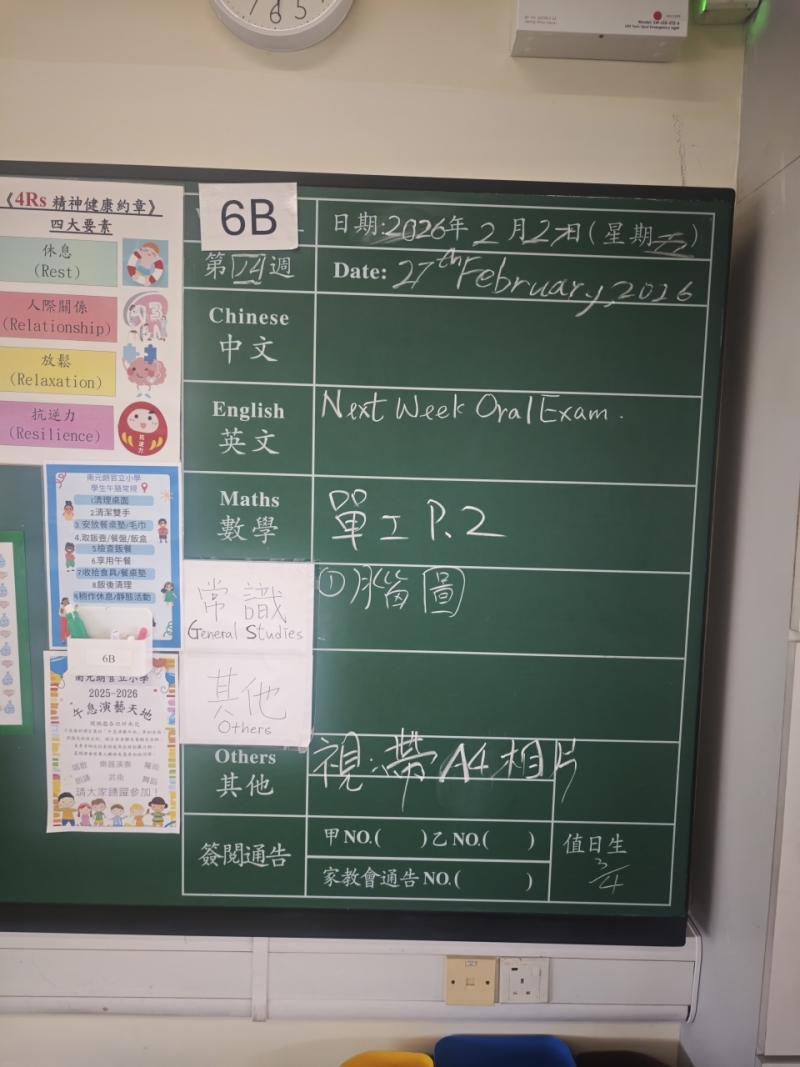 《4Rs 精神健康約章》
四大要素
休息
(Rest)
人際關係
(Relationship)
放鬆
(Relaxation)
抗逆力
(Resilience)
抗逆力
南元朗官立小學
學生午膳常規
1.清理桌面
2.清潔雙手
3.安放餐桌墊/毛巾
4.取飯壺/餐盤/飯盒
5.檢查飯餐
6.享用午餐
7.收拾食具/餐桌墊
8.飯後清理
9.稍作休息/靜態活動
6B
南元朗官立小學
2025-2026
午息演藝天地
唱歌 樂器演奏 魔術
朗誦 武術 舞蹈
請大家踴躍參加！
6B
日期:2026年2月27日(星期五)
第14週
Date: 27th February, 2026
Chinese
中文
English
英文
Next Week Oral Exam.
Maths
數學
單工 P.2
常識
General Studies
①腦圖
其他
Others
Others
其他
視:帶A4相片
簽閱通告
甲 NO.( )乙 NO.( )
家教會通告 NO.( )
值日生
3/4